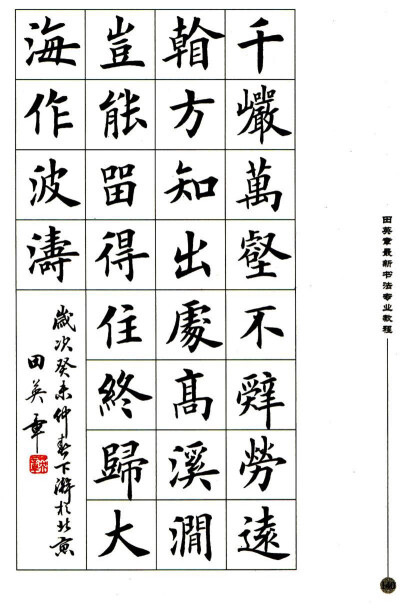 千巖萬壑不辭勞遠
看方知出處髙溪澗
豈能畱得住終歸大
海作波濤
歲次癸未仲春下澣於北京
田英章
田英章最新书法专业教程